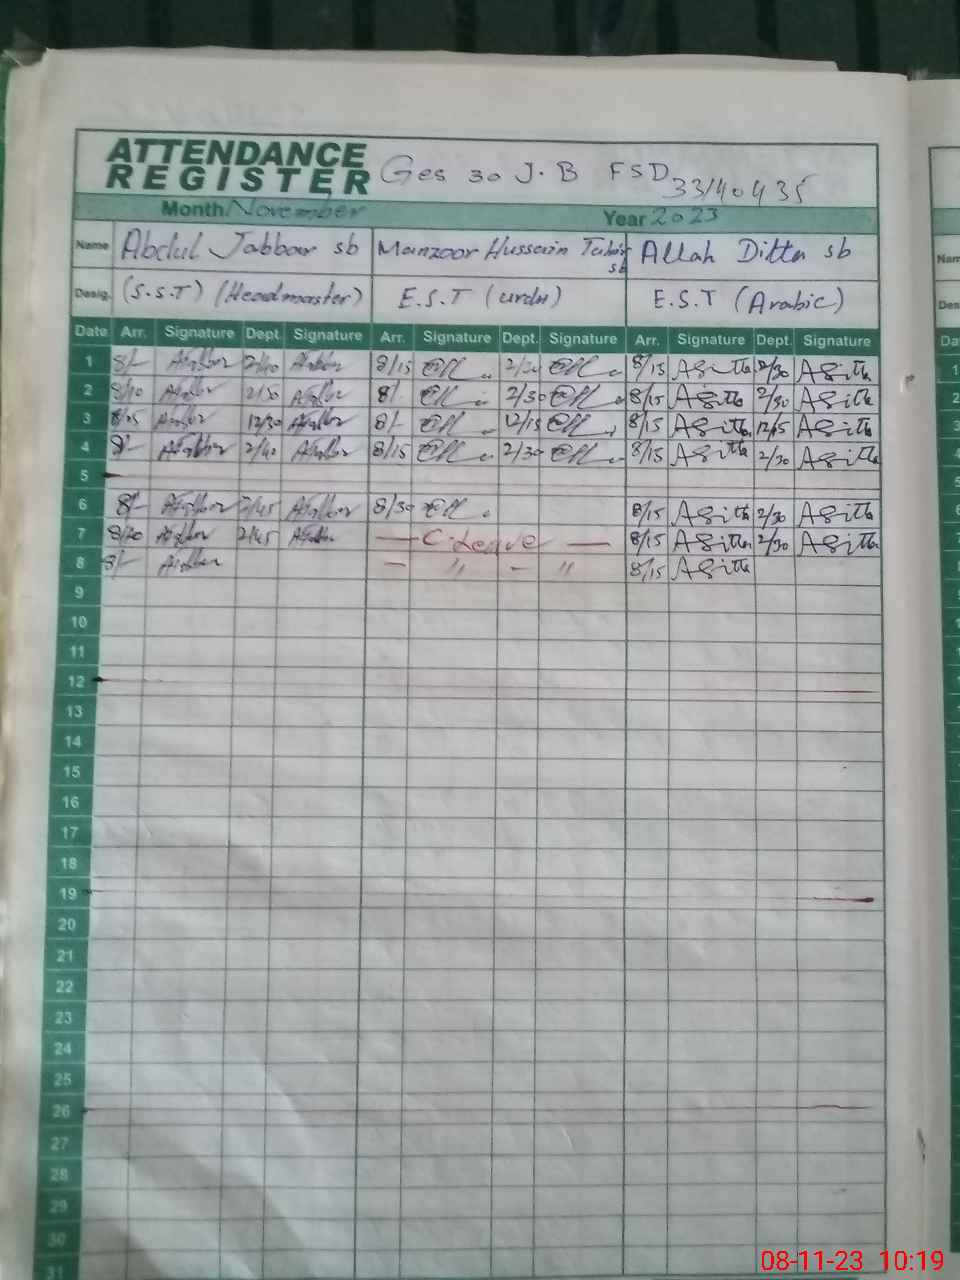 ATTENDANCE
REGISTER
Ges 30 J.B FSD
33140435
Month November Year 2023
Name Abdul Jabbar sb Manzoor Hussain Tahir sb Allah Ditta sb
Desig. (S.S.T) (Headmaster) E.S.T (urdu) E.S.T (Arabic)
Date Arr. Signature Dept. Signature Arr. Signature Dept. Signature Arr. Signature Dept. Signature
1 8/- 2/40 8/15 2/30 8/15 A Ditta 2/30 A Ditta
2 8/10 2/30 8/- 2/30 8/15 A Ditta 2/30 A Ditta
3 8/05 12/30 8/- 12/15 8/15 A Ditta 12/15 A Ditta
4 8/- 2/40 8/15 2/30 8/15 A Ditta 2/30 A Ditta
5
6 8/- 2/45 8/30 8/15 A Ditta 2/30 A Ditta
7 8/20 2/45 — C. Leave — 8/15 A Ditta 2/30 A Ditta
8 8/- — " — " 8/15 A Ditta
9
10
11
12
13
14
15
16
17
18
19
20
21
22
23
24
25
26
27
28
29
30
31
08-11-23 10:19